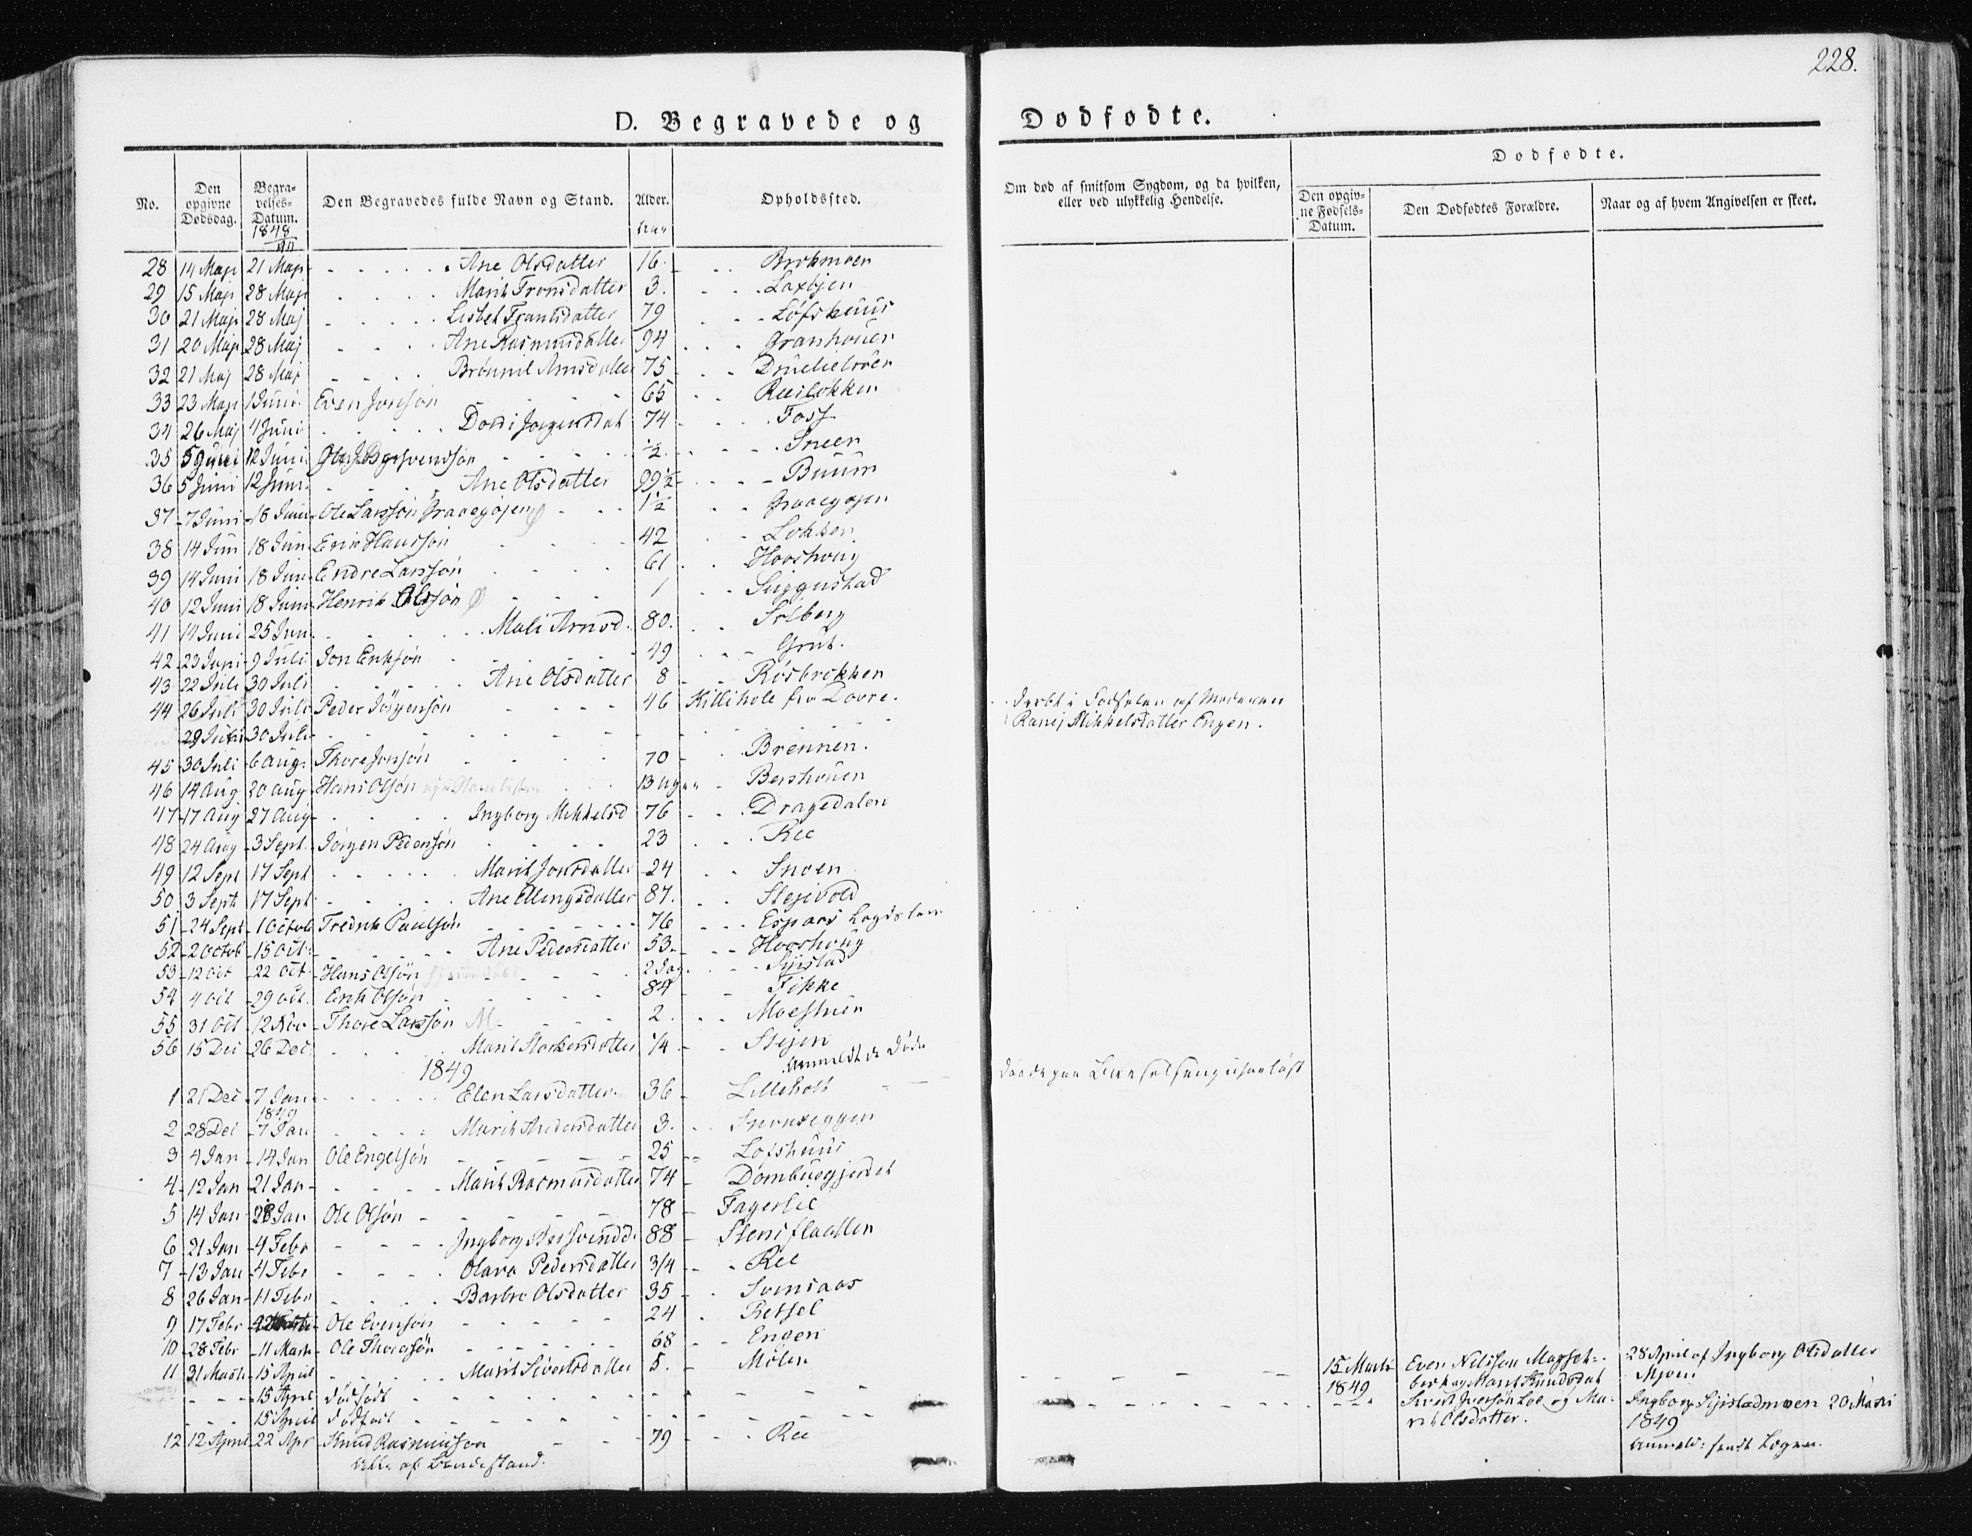 228.
D. Begravede og Dødfødte.
No.
Den opgivne Dødsdag.
Begravelses-Datum.
1848
Den Begravedes fulde Navn og Stand.
Alder.
Opholdssted.
Om død af smitsom Sygdom, og da hvilken, eller ved ulykkelig Hendelse.
Dødfødte.
Den opgivne Fødsels-Datum.
Den Dødfødtes Forældre.
Naar og af hvem Angivelsen er skeet.
28 14 Maj 21 Maj Ane Olsdatter 16
29 15 Maj 28 Maj Marit Tronsdatter 3.
30 21 Maj 28 Maj Lisbet Frantsdatter 79 Løfshuus
31 20 Maj 28 Maj Ane Rasmusdatter 94 Granhouen
32 21 Maj 28 Maj Brønnil Arnsdatter 75
33 23 Maj 1 Juni Even Jonsøn 65 Reiløkken
34 26 Maj 4 Juni Dordi Jørgensdat 74 Foss
35 5 Juni 12 Juni Ole J. Bersvendsøn ½ Sneen
36 5 Juni 12 Juni Ane Olsdatter 99½ Buum
37 7 Juni 18 Juni Ole Larssøn Graaegøjen 1½ Graaegøjen
38 14 Jun 18 Jun Erik Hanssøn 42 Løkken
39 14 Juni 18 Jun Endre Larssøn 61 Hooshoug
40 12 Juni 18 Juni Henrik Olsøn 1 Siggustad
41 14 Juni 25 Jun Mali Arnsd. 80. Solberg
42 23 Juni 9 Juli Jon Eriksøn 49 Grut.
43 22 Juli 30 Juli Ane Olsdatter 8 Røsbrekken
44 26 Juli 30 Juli Peder Jørgensøn 46 Killihole fra Dovre.
Dødt i Fødselen af Moderen
29 Juli 30 Juli
Ranej Mikkelsdatter Engen.
45 30 Juli 6 Aug. Thore Jonsøn 70 Brennen.
46 14 Aug 20 Aug Hans Olsøn 13 Uger Bershouen
47 17 Aug 27 Aug Ingborg Mikkelsd 76 Dragedalen
48 24 Aug 3 Sept. Jørgen Pedersøn 23 Ree
49 12 Sept 17 Sept Marit Jonsdatter 24 Snoen
50 3 Sept 17 Sept Ane Ellingsdatter 87. Stejvold
51 24 Sept 1 Octob Fredrik Paulsøn 76 Espaas Lægdslem
52 2 Octob 15 Oct. Ane Pedersdatter 53 Hooshoug
53 12 Oct 22 Oct Hans Olsøn 2 Dag. Sjistad
54 4 Oct 29 Oct. Erik Olsøn 84 Fikke
55 31 Oct 12 Nov Thore Larssøn M 2. Moestuen
56 15 Dec 26 Dec Marit Størkersdatter ¼ Stejen
1849
Anmeldt de Døde
1 21 Dec 7 Jan 1849 Elen Larsdatter. 36 Lilleholt
Døde paa Barselseng uforløst
2 28 Dec 7 Jan Marit Andersdatter 3. Snoenseggen
3 4 Jan 14 Jan Ole Engelsøn 25 Lofshuus
4 12 Jan 21 Jan Marit Rasmusdatter 74 Dombusgjerdet
5 14 Jan 28 Jan Ole Olsøn 78 Fagerlie
6 21 Jan 4 Febr Ingborg Bersvendd. 88 Stensflaatten
7 13 Jan 4 Febr Olava Pedersdatter 3/4 Ree
8 26 Jan 11 Febr Barbro Olsdatter 35 Svensaas
9 17 Febr Ole Evensøn 24 Retsel
10 28 Febr 11 Marts Ole Thoresøn 68 Engen
11 31 Marts 15 April Marit Sivertsdatter 5. Mølen
15 April dødfødt
15 Marts 1849
Even Nilssen Magsetberk og Marit Knudsdat
28 April af Ingborg Olsdatter Mjoen
15 April dødfødt
Sivert Iversøn Loe og Marit Olsdatter.
Ingborg Sjistadmoen 20 Marts 1849
12 12 April 22 Apr Knud Rasmussøn 79 Ree
Anmeld: sendt Løgen.
af Bondestand.